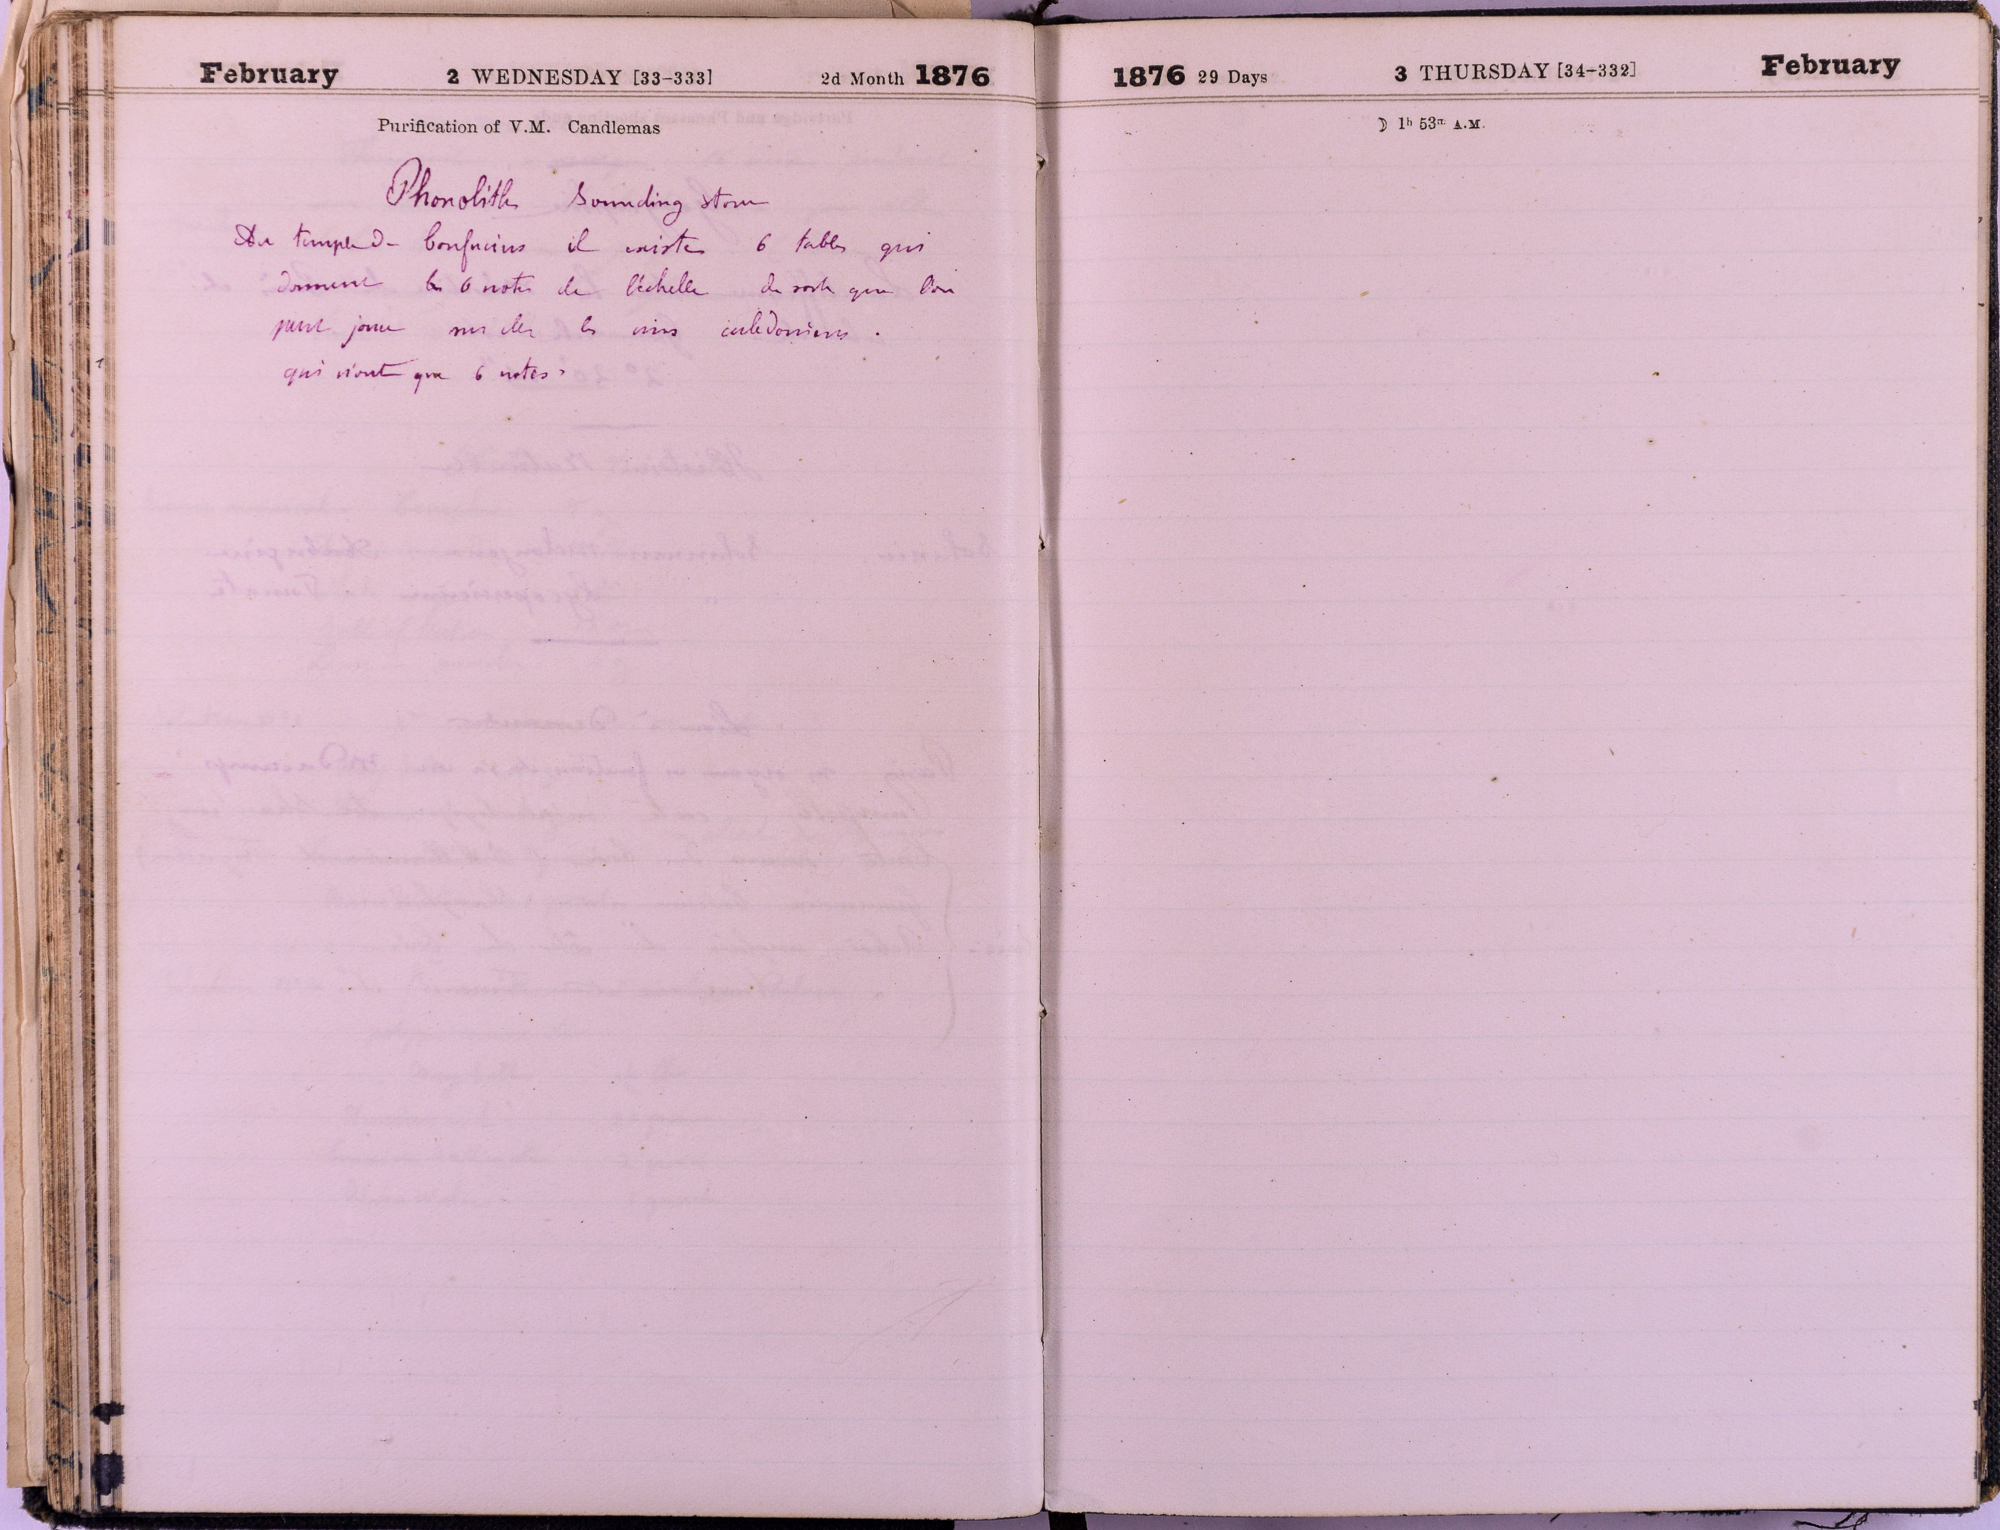 February 2 WEDNESDAY [33-333] 2d Month 1876
Purification of V.M. Candlemas
Phonolithe Sounding stone
Au temple de Confucius il existe 6 tables qui
donnent les 6 notes de l'échelle de sorte que l'on
peut jouer sur elles les airs calédoniens.
qui n'ont que 6 notes.
1876 29 Days 3 THURSDAY [34-332] February
☽ 1h 53m A.M.